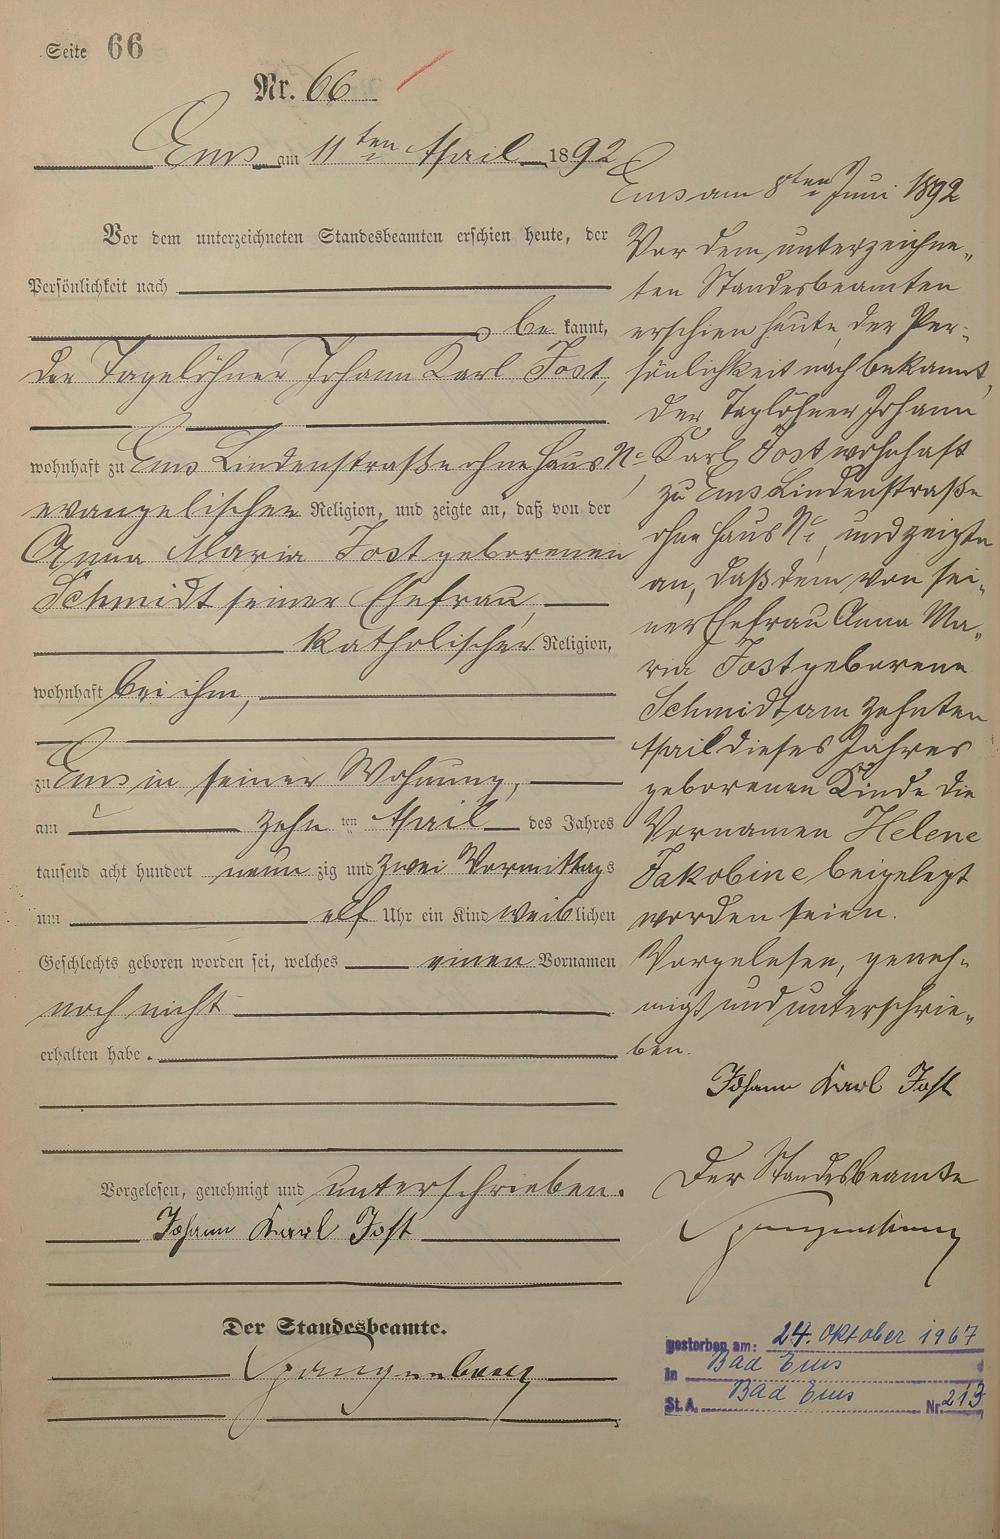 Seite 66
Nr. 66
Ems am 11ten April 1892
Vor dem unterzeichneten Standesbeamten erschien heute, der
Persönlichkeit nach
be kannt,
der Tagelöhner Johann Karl Jost,
wohnhaft zu Ems Lindenstraße ohne Haus Nr.
evangelischer Religion, und zeigte an, daß von der
Anna Maria Jost geborenen
Schmidt seiner Ehefrau,
katholischer Religion,
wohnhaft bei ihm,
zu Ems in seiner Wohnung,
am zehn ten April des Jahres
tausend acht hundert neun zig und zwei Vormittags
um elf Uhr ein Kind weiblichen
Geschlechts geboren worden sei, welches einen Vornamen
noch nicht
erhalten habe.
Vorgelesen, genehmigt und unterschrieben.
Johann Karl Jost
Der Standesbeamte.
Spangenberg
Ems am 8ten Juni 1892
Vor dem unterzeichne-
ten Standesbeamten
erschien heute, der Per-
sönlichkeit nach bekannt,
der Taglöhner Johann
Karl Jost wohnhaft
zu Ems Lindenstraße
ohne Haus Nr., und zeigte
an, daß dem von sei-
ner Ehefrau Anna Ma-
ria Jost geborene
Schmidt am zehnten
April dieses Jahres
geborenen Kinde die
Vornamen Helene
Jakobine beigelegt
worden seien.
Vorgelesen, geneh-
migt und unterschrie-
ben.
Johann Karl Jost
Der Standesbeamte
Spangenberg
gestorben am: 24. Oktober 1967
in Bad Ems
St. A. Bad Ems Nr. 213